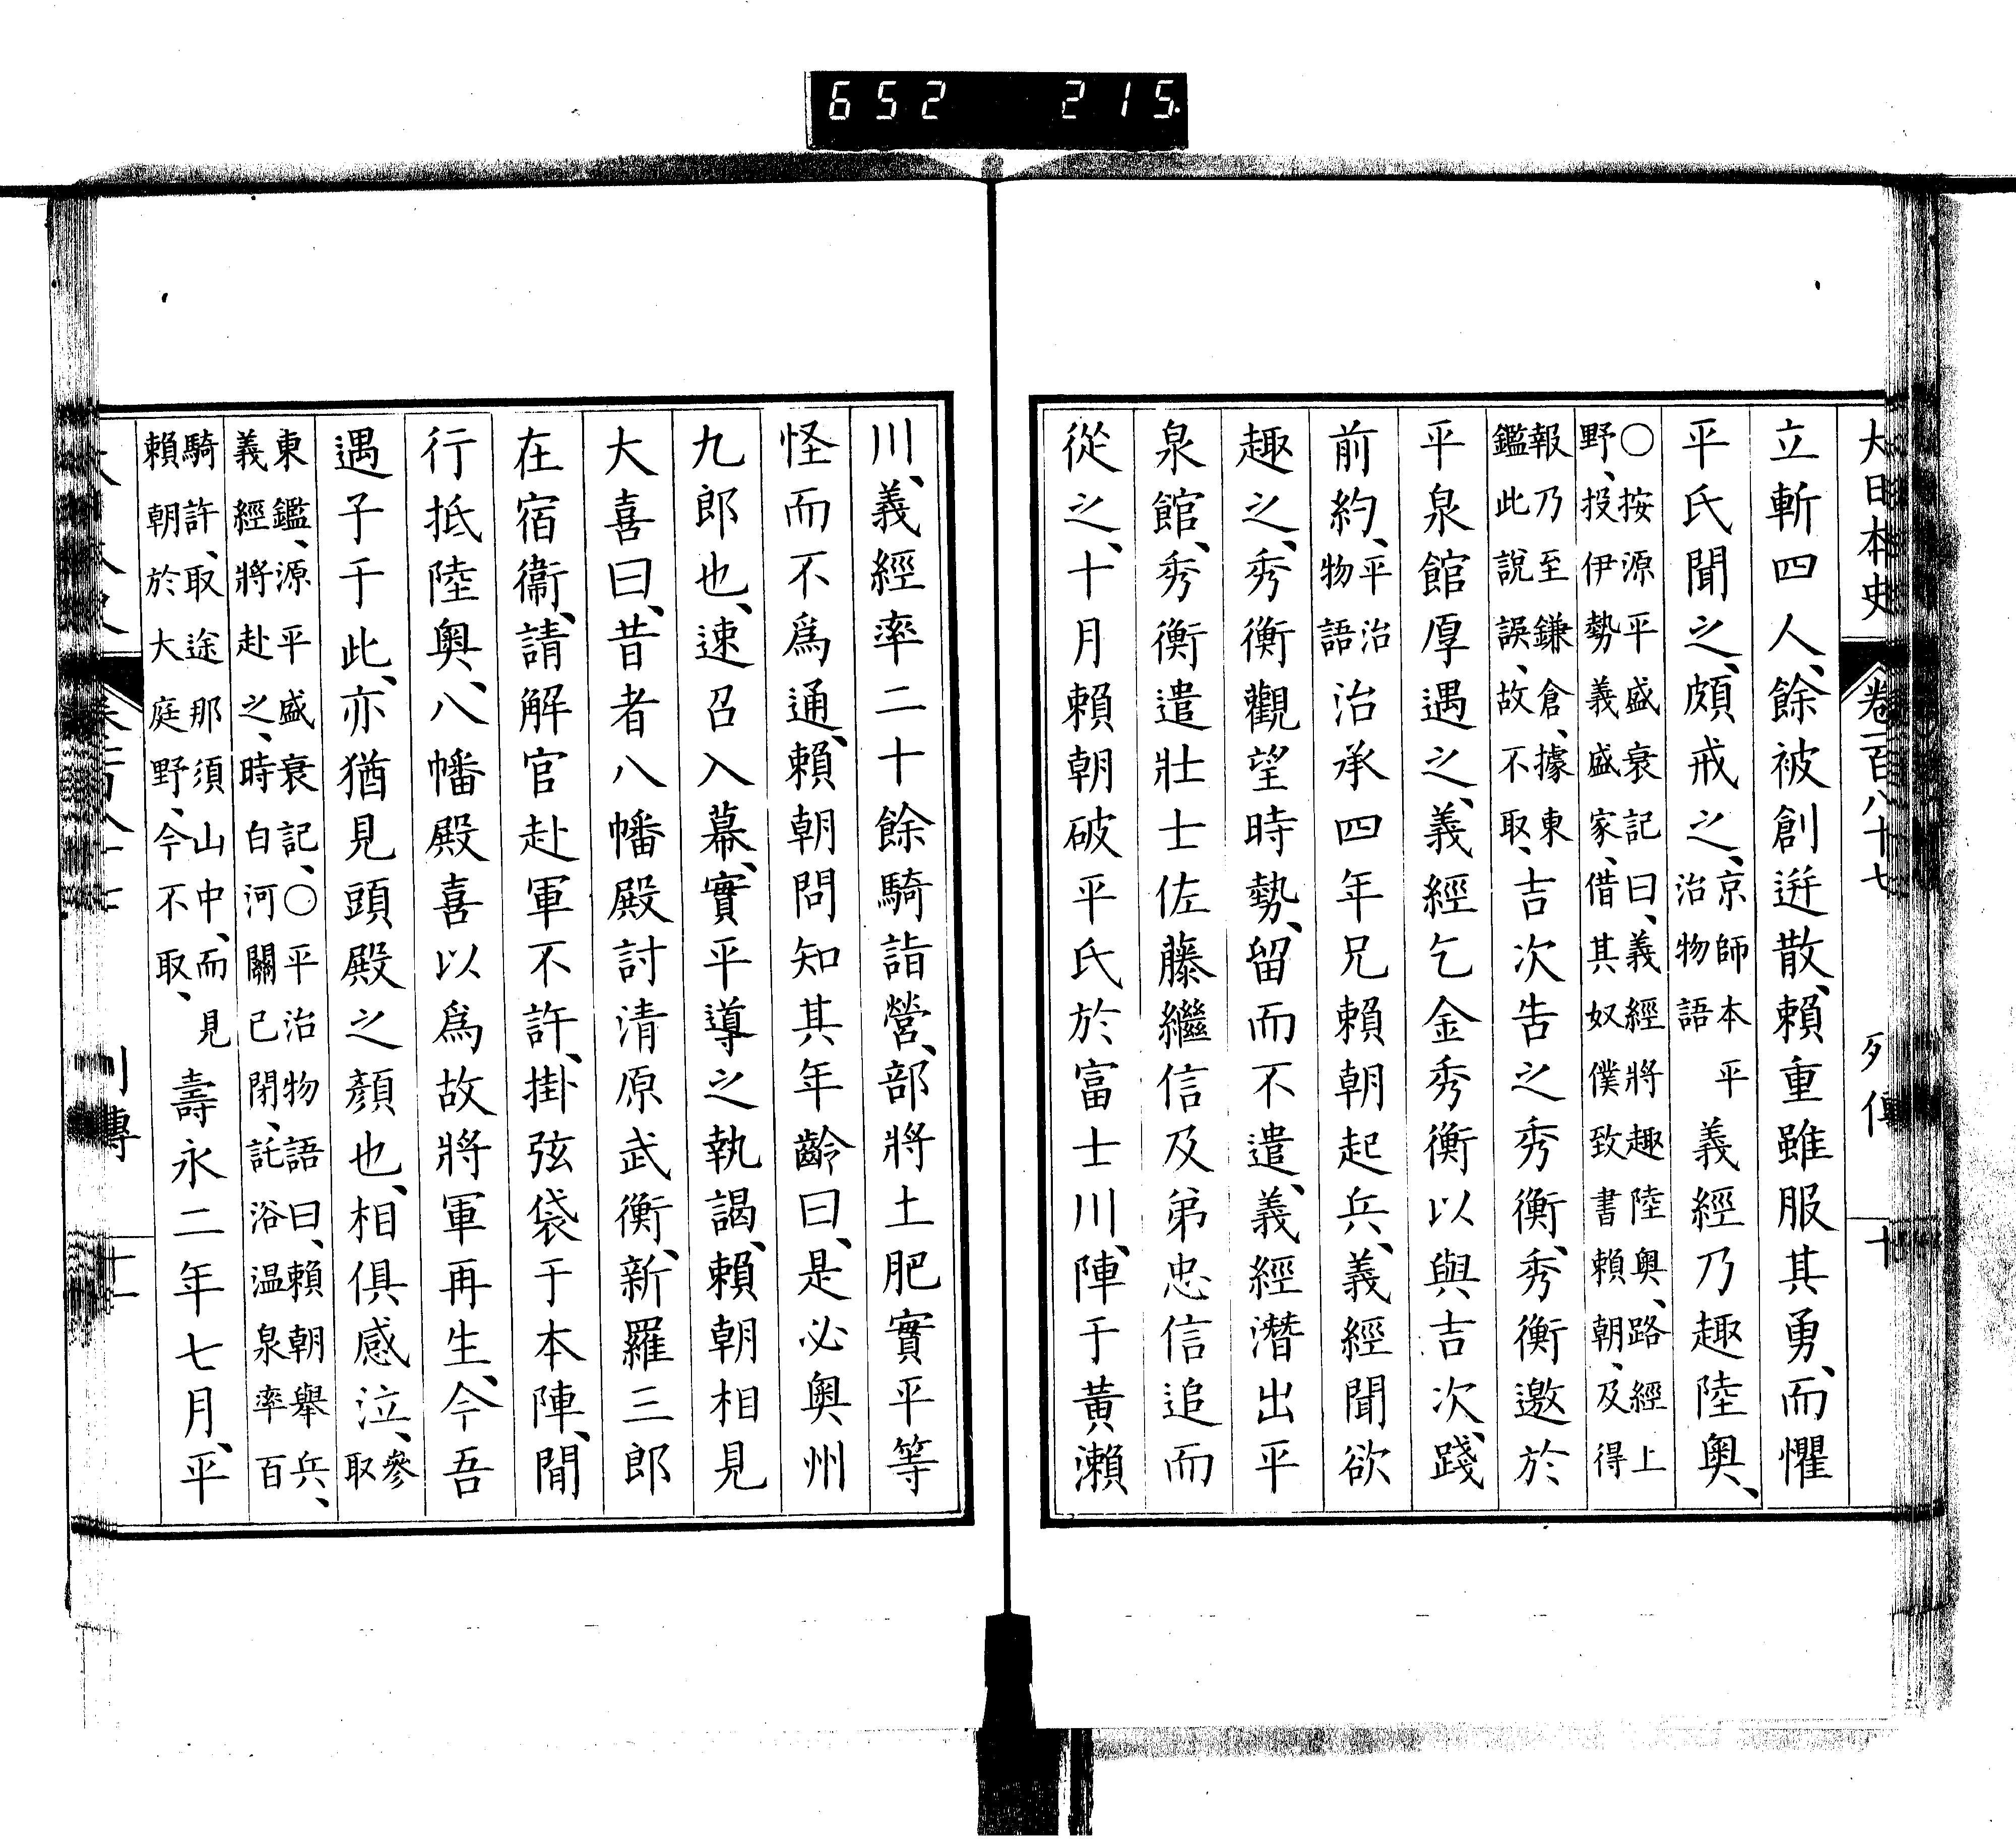 652 215.
大日本史 卷一百八十七 列傳 十
立斬四人、餘被創迸散、賴重雖服其勇、而懼
平氏聞之、頗戒之、京師本平治物語義經乃趣陸奧、
○按源平盛衰記曰、義經將趣陸奧、路經上
野、投伊勢義盛家、借其奴僕致書賴朝、及得
報乃至鎌倉、據東
鑑此說誤、故不取、吉次告之秀衡、秀衡邀於
平泉館厚遇之、義經乞金秀衡以與吉次、踐
前約、平治物語治承四年兄賴朝起兵、義經聞欲
趣之、秀衡觀望時勢、留而不遣、義經潛出平
泉館、秀衡遣壯士佐藤繼信及弟忠信追而
從之、十月賴朝破平氏於富士川、陣于黃瀨
川、義經率二十餘騎詣營、部將土肥實平等
怪而不爲通、賴朝問知其年齡曰、是必奧州
九郎也、速召入幕、實平導之執謁、賴朝相見
大喜曰、昔者八幡殿討清原武衡、新羅三郎
在宿衞、請解官赴軍不許、掛弦袋于本陣、間
行抵陸奧、八幡殿喜以爲故將軍再生、今吾
遇子于此、亦猶見頭殿之顏也、相俱感泣、參取
東鑑、源平盛衰記、○平治物語曰、賴朝舉兵、
義經將赴之、時白河關已閉、託浴温泉率百
騎許、取途那須山中、而見
賴朝於大庭野、今不取、壽永二年七月、平